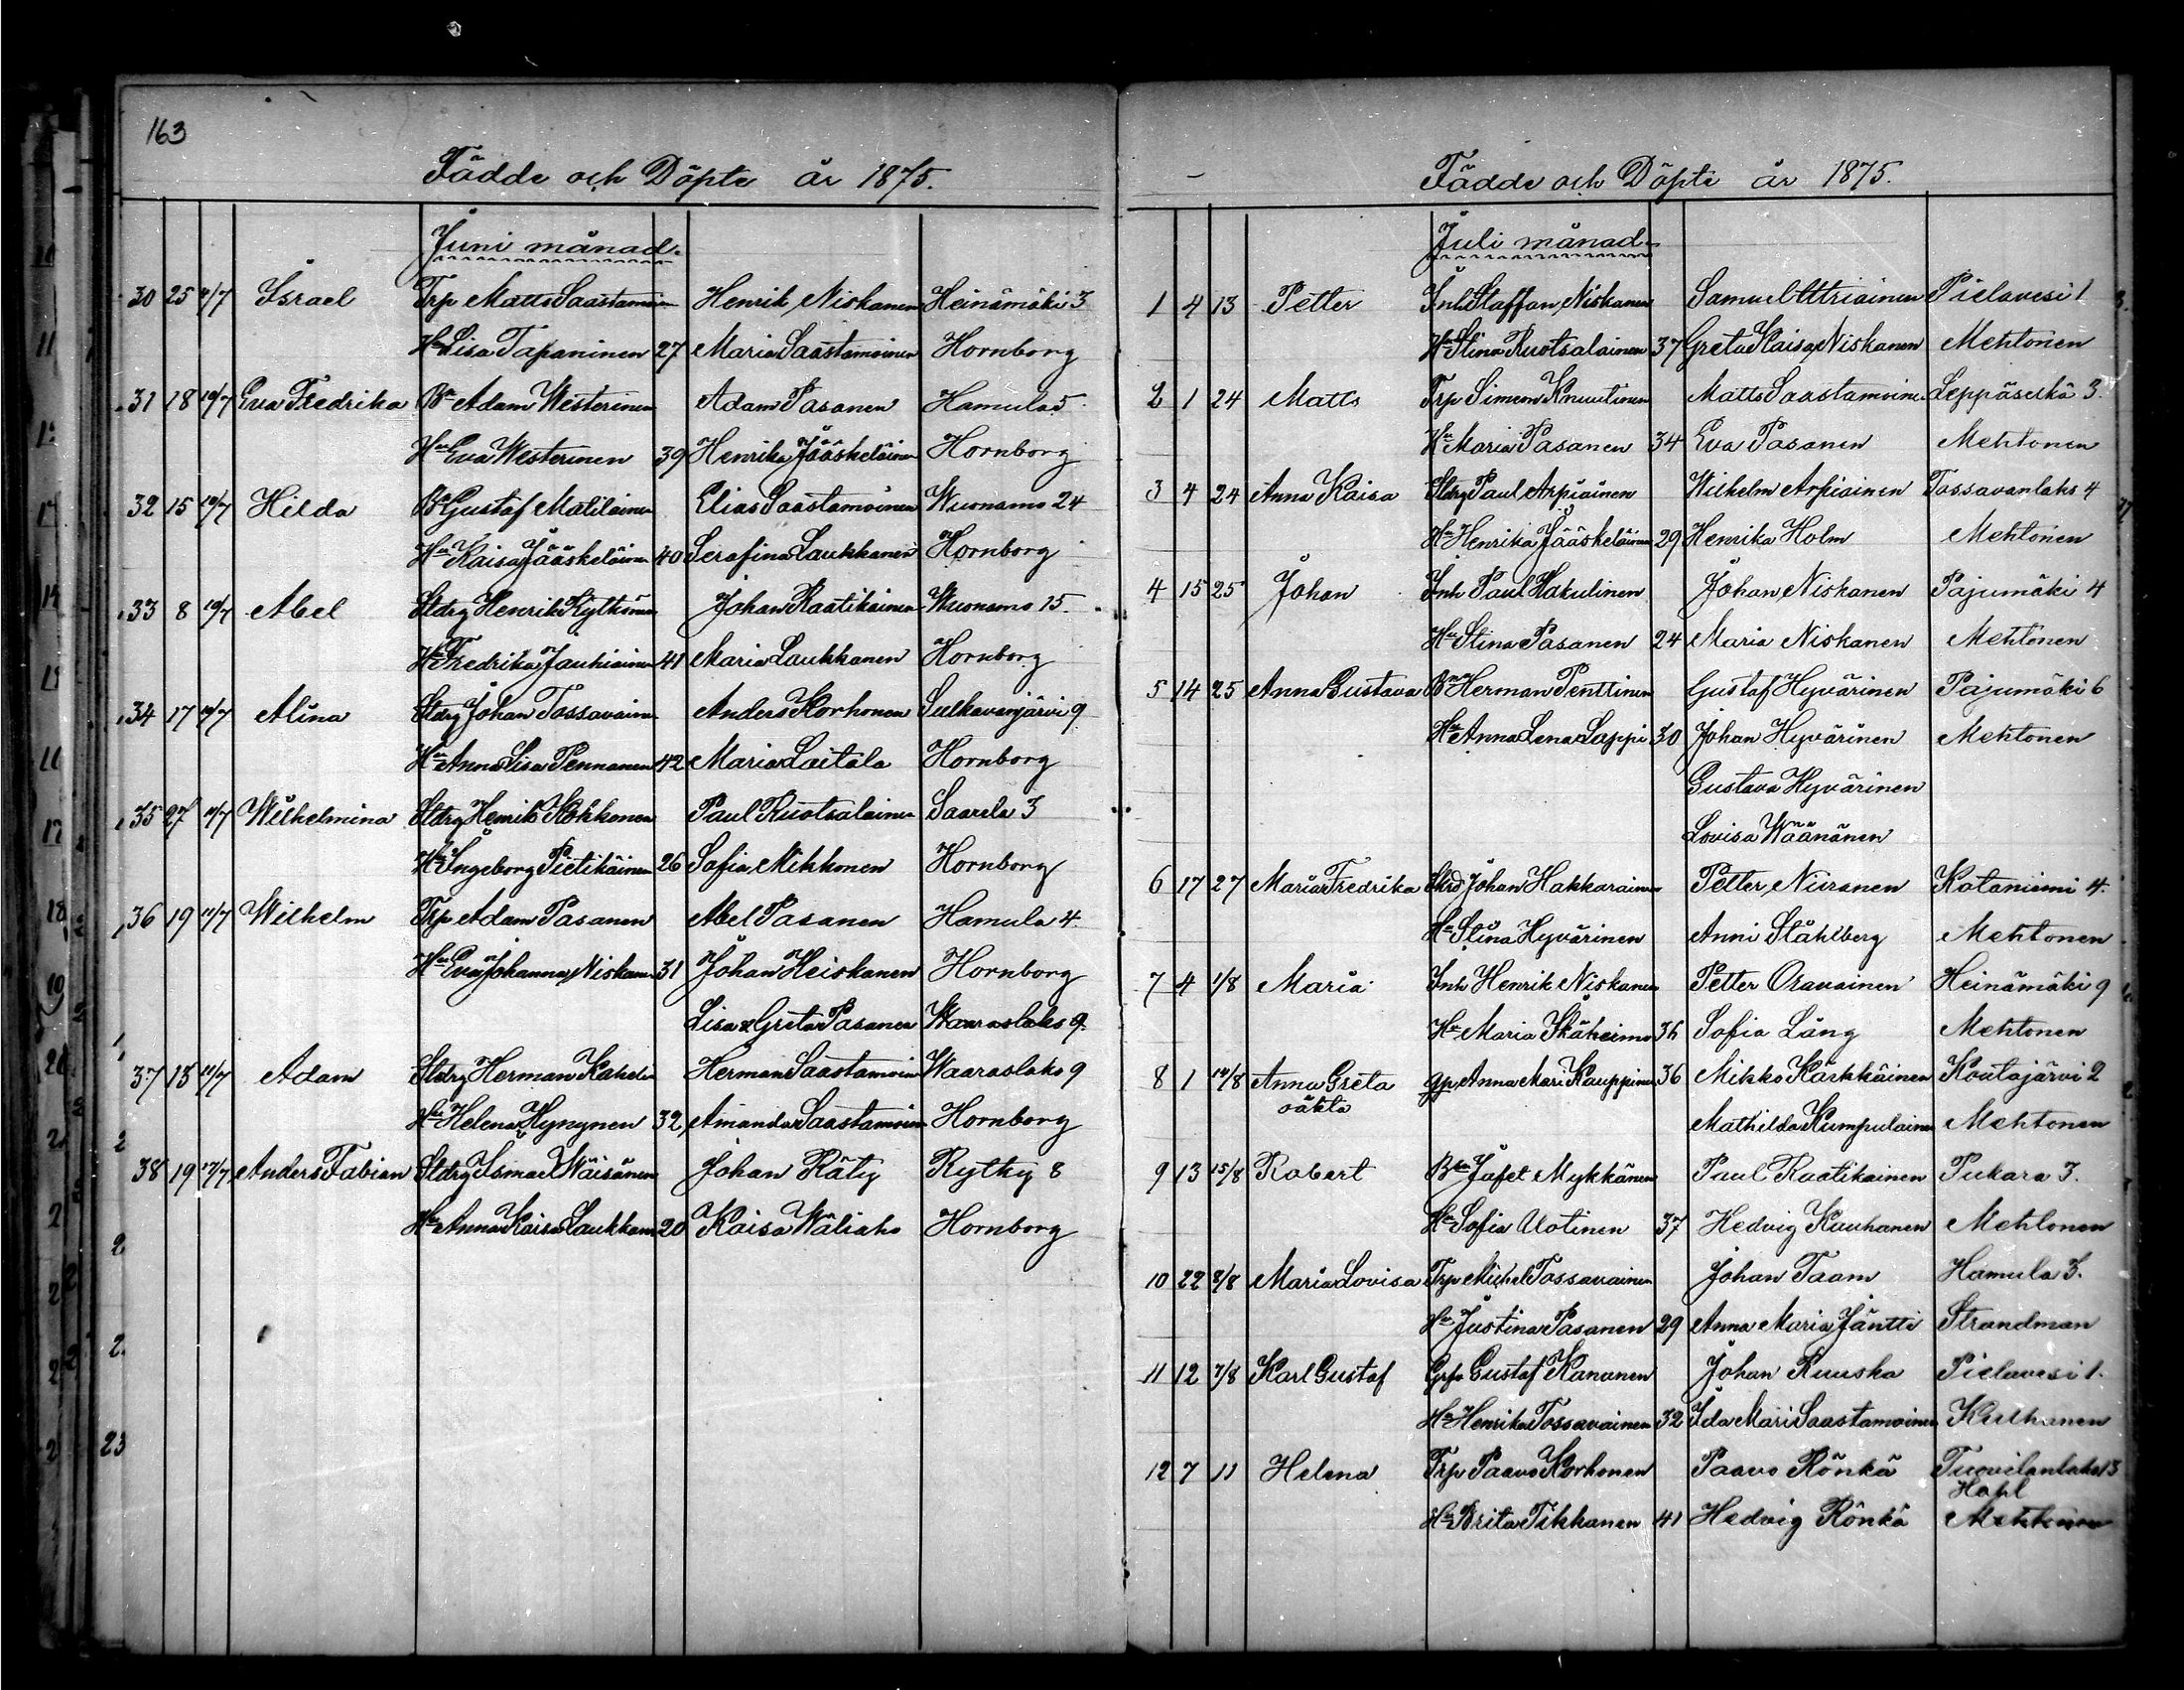 163
Födde och Döpte år 1875.
Juni månad.
30 25 4/7 Israel Trp Matts Saastamoin Henrik Niskanen Heinämäki 3
Hu Lisa Tapaninen 27 Maria Saastamoinen Hornborg
31 18 10/7 Eva Fredrika Bn Adam Westerinen Adam Pasanen Hamula 5
Hu Eva Westerinen 39 Henrika Jääskeläinen Hornborg
32 15 10/7 Hilda Bn Gustaf Matilainen Elias Saastamoinen Wuonamo 24
Hu Kaisa Jääskeläinen 40 Serafina Laukkanen Hornborg
33 8 10/7 Abel Stdrg Henrik Kytkönen Johan Raatikainen Wuonamo 15.
Hu Fredrika Jauhiainen 41 Maria Laukkanen Hornborg
34 17 10/7 Alina Stdrg Johan Tossavain Anders Korhonen Sulkavanjärvi 9
Hu Anna Lisa Pennanen 42 Maria Laitala Hornborg
35 27 11/7 Wilhelmina Stdrg Henrik Kokkonen Paul Ruotsalainen Saarela 3
Hu Ingeborg Pietikäinen 26 Sofia Mikkonen Hornborg
36 19 11/7 Wilhelm Trp Adam Pasanen Abel Pasanen Hamula 4.
Hu Eva Johanna Niskanen 31 Johan Heiskanen Hornborg
Lisa & Greta Pasanen Waaraslaks 9.
37 13 11/7 Adam Stdrg Herman Kahelin Herman Saastamoin Waaraslaks 9
Hu Helena Hynynen 32 Amanda Saastamoin Hornborg
38 19 17/7 Anders Fabian Stdrg Ismael Wäisänen Johan Räty Rytky 8
Hu Anna Kaisa Laukkan 20 Kaisa Wäliaho Hornborg
Födde och Döpte år 1875.
Juli månad.
1 4 13 Petter Inh Staffan Niskanen Samuel Uttriainen Pielavesi 1
Hu Stina Ruotsalainen 37 Greta Kaisa Niskanen Mehtonen
2 1 24 Matts Trp Simon Knuutinen Matts Saastamoine Leppäselkä 3.
Hu Maria Pasanen 34 Eva Pasanen Mehtonen
3 4 24 Anna Kaisa Stdrg Paul Arpiainen Wilhelm Arpiainen Tossavanlaks 4
Hu Henrika Jääskeläinen 29 Henrika Holm Mehtonen
4 15 25 Johan Inh Paul Hakulinen Johan Niskanen Pajumäki 4
Hu Stina Pasanen 24 Maria Niskanen Mehtonen
5 14 25 Anna Gustava Bn Herman Penttinen Gustaf Hyvärinen Pajumäki 6
Hu Anna Lena Lappi 30 Johan Hyvärinen Mehtonen
Gustava Hyvärinen
Lovisa Wäänänen
6 17 27 Maria Fredrika Skrd Johan Hakkarainen Petter Niiranen Kataniemi 4.
Hu Stina Hyvärinen Anni Ståhlberg Mehtonen
7 4 1/8 Maria Inh Henrik Niskanen Petter Oravainen Heinämäki 9
Hu Maria Skäheimo 36 Sofia Lång Mehtonen
8 1 14/8 Anna Greta gp Anna Mari Kauppinen 36 Mikko Kärkkäinen Koutajärvi 2
oäkta Mathilda Kumpulainen Mehtonen
9 13 15/8 Robert Bn Jafet Mykkänen Paul Raatikainen Pukara 3.
Hu Sofia Uotinen 37 Hedvig Kauhanen Mehtonen
10 22 8/8 Maria Lovisa Trp Michel Tossavainen Johan Taam Hamula 3.
Hu Justina Pasanen 29 Anna Maria Jäntti Strandman
11 12 7/8 Karl Gustaf Gustaf Kananen Johan Ruuska Pielavesi 1.
Hu Henrika Tossavainen 32 Ida Mari Saastamoinen Kulhanen
12 7 11 Helena Trp Paavo Korhonen Paavo Rönkä Tuovilanlaks 13
Hu Brita Tikkanen 41 Hedvig Rönkä Mehtonen